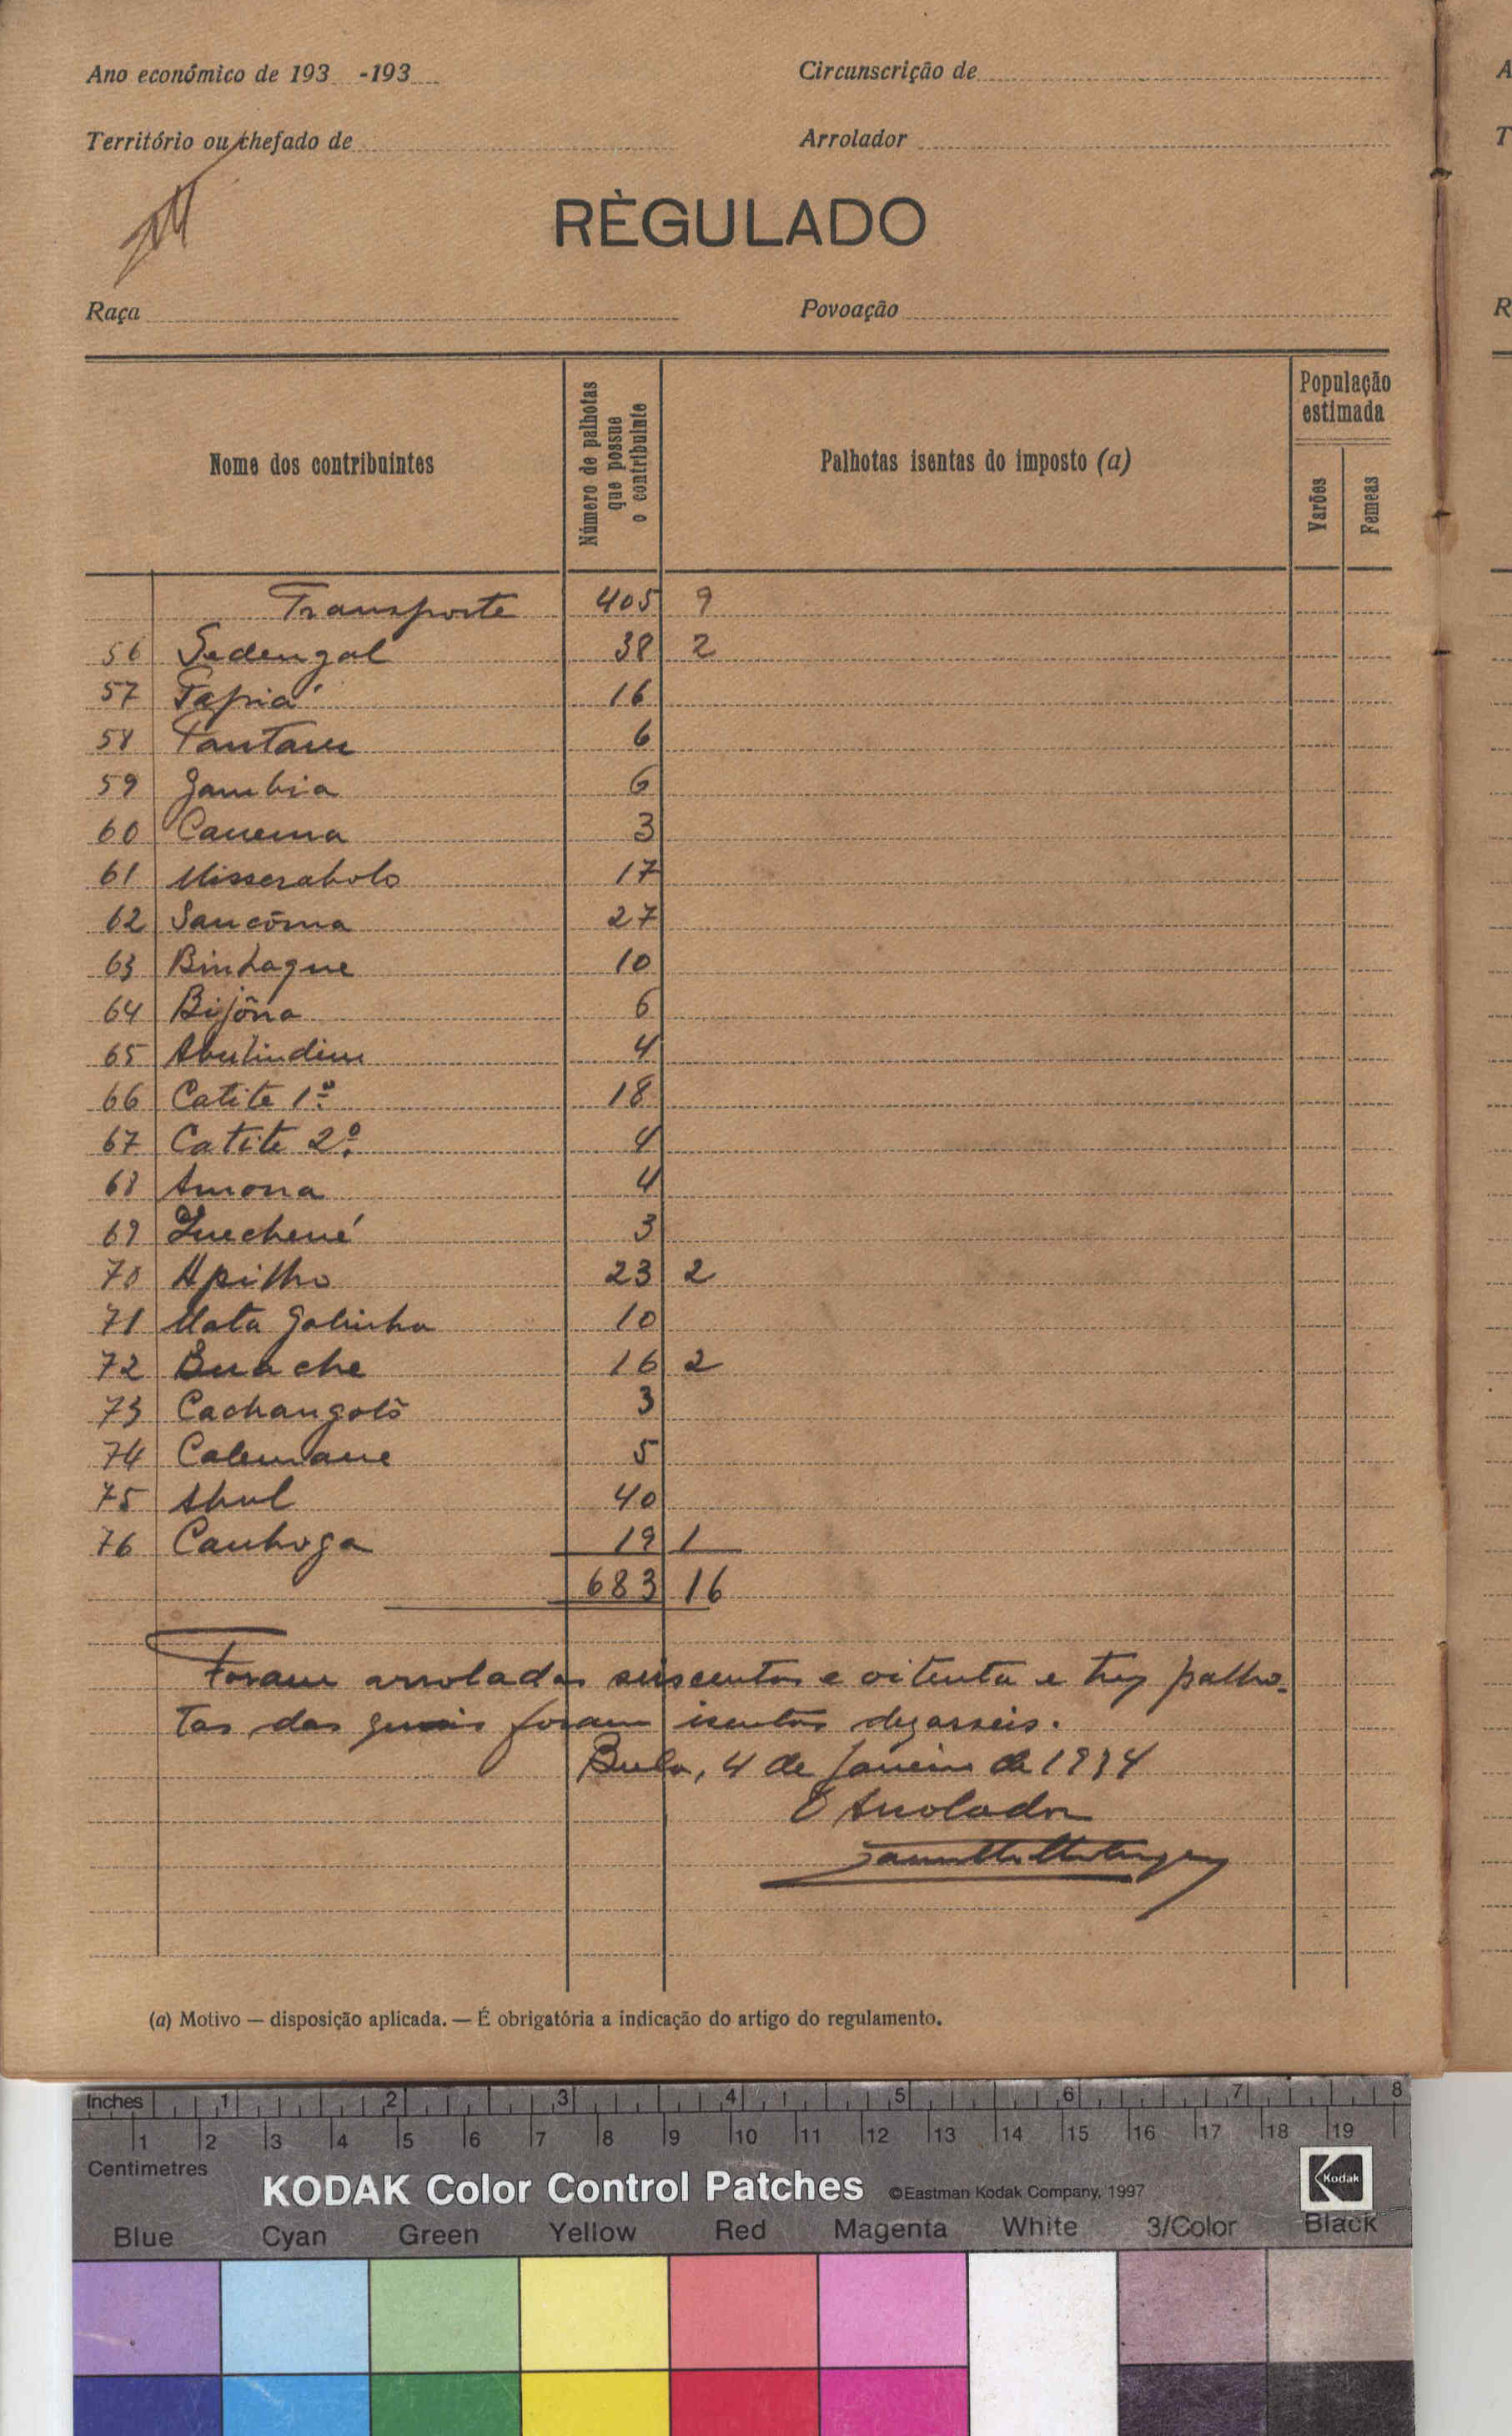 Ano económico de 193 -193
Circunscrição de
Território ou chefado de
Arrolador
RÈGULADO
Raça
Povoação
Nome dos contribuintes
Número de palhotas que possue o contribuinte
Palhotas isentas do imposto (a)
População estimada
Varões
Femeas
Transporte 405 9
56 Sedengal 38 2
57 Tapiá 16
58 Tantam 6
59 Gambia 6
60 Canema 3
61 Misserabolo 17
62 Sancôma 27
63 Binhaque 10
64 Bijôna 6
65 Abulindim 4
66 Catite 1º 18
67 Catite 2º 4
68 Amona 4
69 3
70 Apilho 23 2
71 Mata Galinha 10
72 Buache 16 2
73 Cachangolô 3
74 Calemane 5
75 Abul 40
76 Canhoga 19 1
683 16
Foram arrolados seiscentos e oitenta e tres palho-
tas das quais foram isentas dezasseis.
Bula, 4 de Janeiro de 1934
O Arrolador
(a) Motivo — disposição aplicada. — É obrigatória a indicação do artigo do regulamento.
Inches 1 2 3 4 5 6 7 8
1 2 3 4 5 6 7 8 9 10 11 12 13 14 15 16 17 18 19
Centimetres
KODAK Color Control Patches ©Eastman Kodak Company, 1997 Kodak
Blue Cyan Green Yellow Red Magenta White 3/Color Black